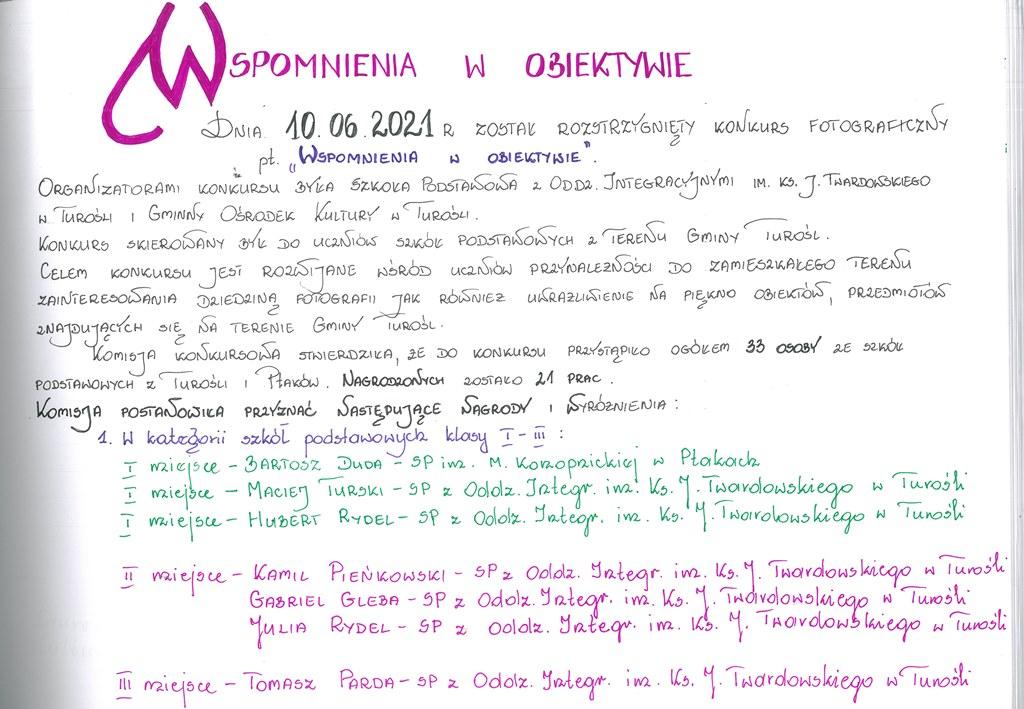 WSPOMNIENIA W OBIEKTYWIE
DNIA 10.06.2021 R ZOSTAŁ ROZSTRZYGNIĘTY KONKURS FOTOGRAFICZNY
pt. „WSPOMNIENIA W OBIEKTYWIE".
ORGANIZATORAMI KONKURSU BYŁA SZKOŁA PODSTAWOWA Z ODDZ. INTEGRACYJNYMI IM. KS. J. TWARDOWSKIEGO
W TUROŚLI I GMINNY OŚRODEK KULTURY W TUROŚLI.
KONKURS SKIEROWANY BYŁ DO UCZNIÓW SZKÓŁ PODSTAWOWYCH Z TERENU GMINY TUROŚL.
CELEM KONKURSU JEST ROZWIJANE WŚRÓD UCZNIÓW PRZYNALEŻNOŚCI DO ZAMIESZKAŁEGO TERENU
ZAINTERESOWANIA DZIEDZINĄ FOTOGRAFII JAK RÓWNIEŻ UWRAŻLIWIENIE NA PIĘKNO OBIEKTÓW, PRZEDMIOTÓW
ZNAJDUJĄCYCH SIĘ NA TERENIE GMINY TUROŚL.
KOMISJA KONKURSOWA STWIERDZIŁA, ŻE DO KONKURSU PRZYSTĄPIŁO OGÓŁEM 33 OSOBY ZE SZKÓŁ
PODSTAWOWYCH Z TUROŚLI I PTAKÓW. NAGRODZONYCH ZOSTAŁO 21 PRAC.
KOMISJA POSTANOWIŁA PRZYZNAĆ NASTĘPUJĄCE NAGRODY I WYRÓŻNIENIA:
1. W kategorii szkół podstawowych klasy I-III:
I miejsce - BARTOSZ DUDA - SP im. M. Konopnickiej w Ptakach
I miejsce - MACIEJ TURSKI - SP z Oddz. Integr. im. Ks. J. Twardowskiego w Turośli
I miejsce - HUBERT RYDEL - SP z Oddz. Integr. im. Ks. J. Twardowskiego w Turośli
II miejsce - KAMIL PIEŃKOWSKI - SP z Oddz. Integr. im. Ks. J. Twardowskiego w Turośli
GABRIEL GLEBA - SP z Oddz. Integr. im. Ks. J. Twardowskiego w Turośli
JULIA RYDEL - SP z Oddz. Integr. im. Ks. J. Twardowskiego w Turośli
III miejsce - TOMASZ PARDA - SP z Oddz. Integr. im. Ks. J. Twardowskiego w Turośli